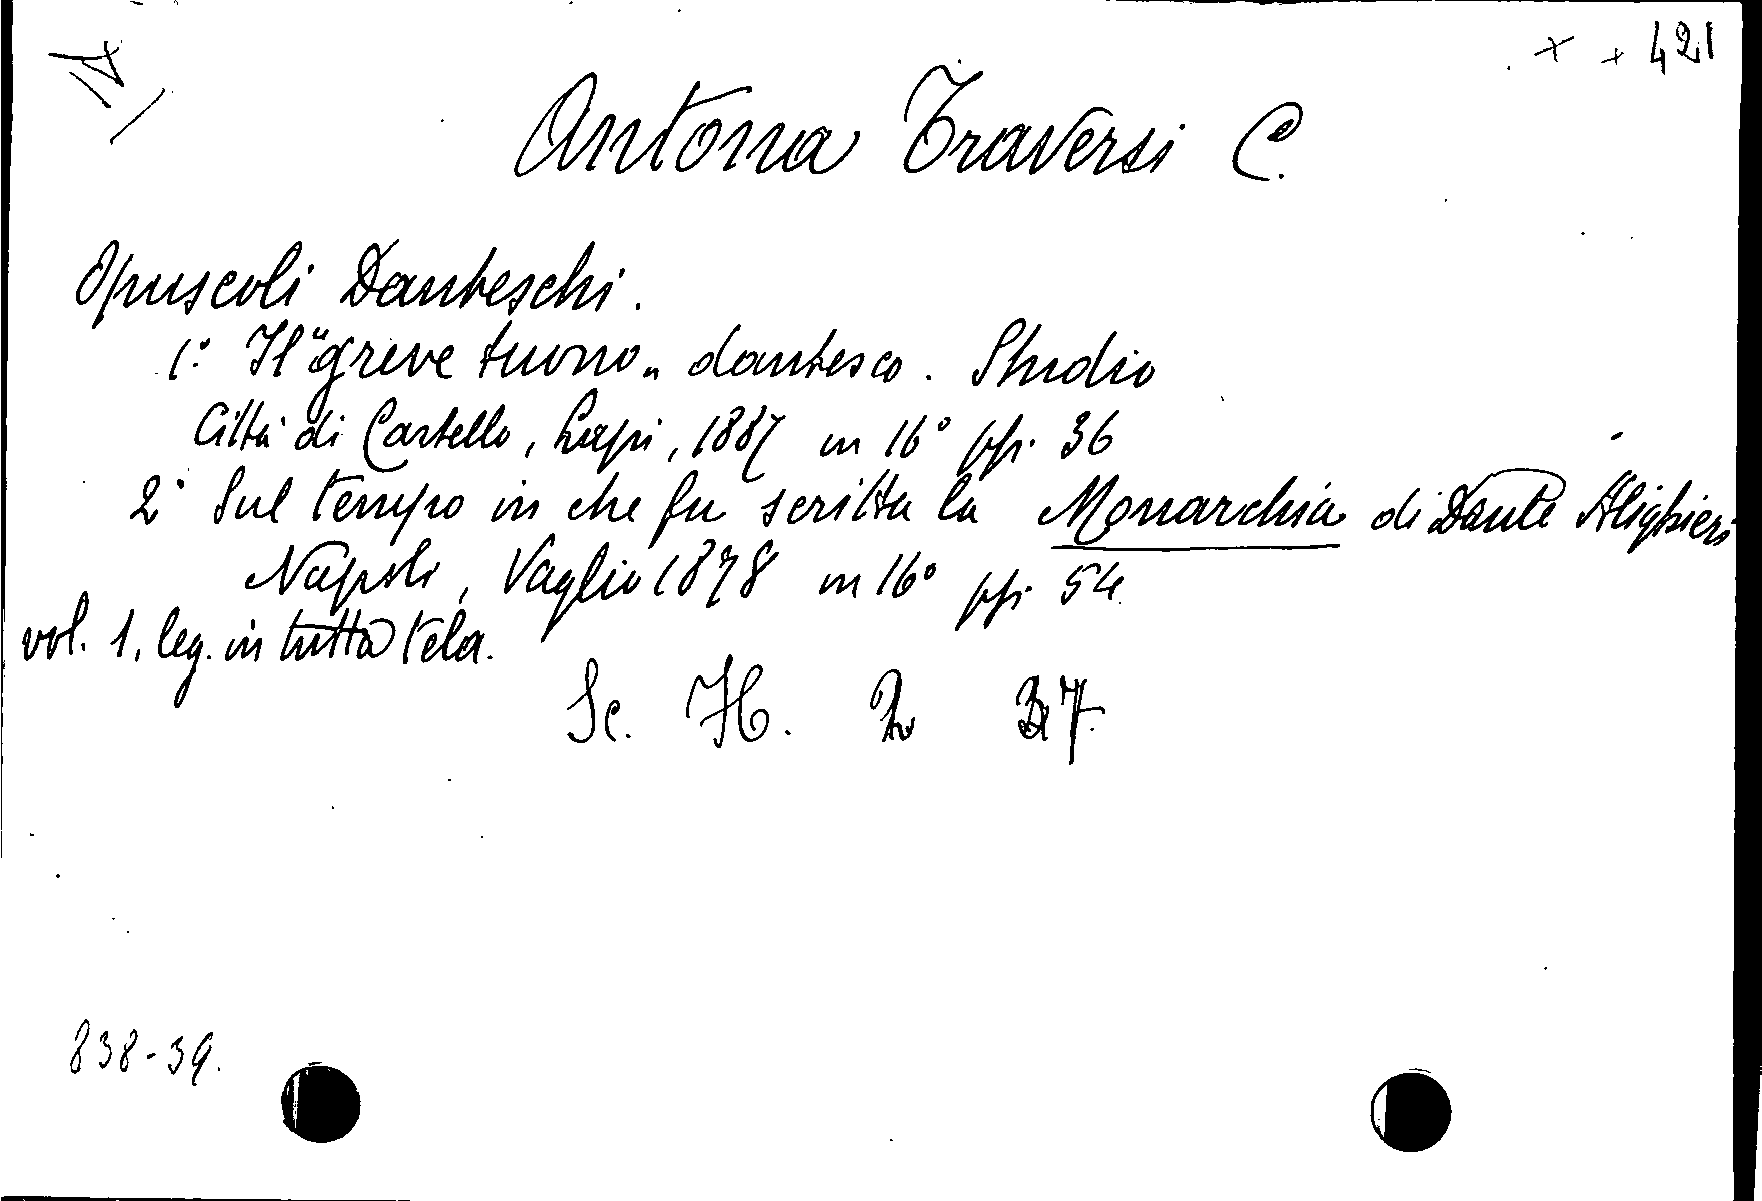 x + 421
Antona Traversi C.
Opuscoli Danteschi.
1.° Il "greve tuono„ dantesco. Studio
Città di Castello, Lapi, 1887 in 16° pp. 36
2° Sul tempo in che fu scritta la Monarchia di Dante Alighieri
Napoli, Vaglio 1878 in 16° pp. 54.
vol. 1. leg. in tutta tela.
Sc. H. 2 37.
838-39.